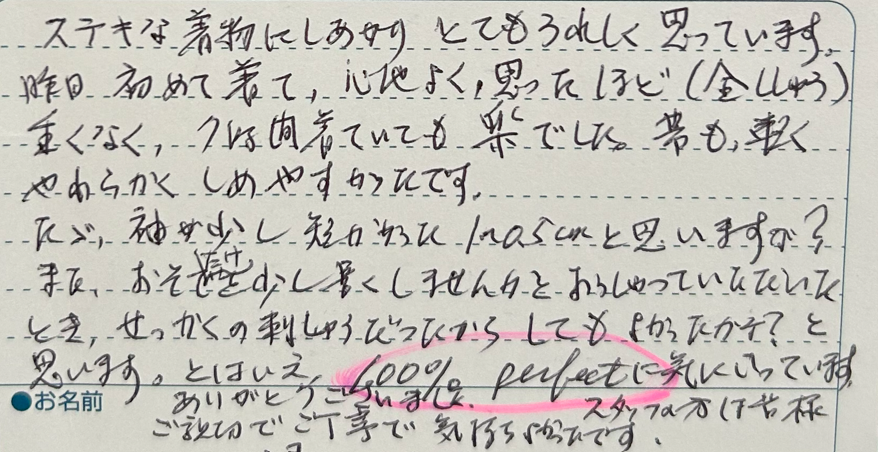 ステキな着物にしあがり とてもうれしく思っています。
昨日 初めて着て, 心地よく, 思ったほど (金ししゅう)
重くなく, 1日間着ていても 楽でした。帯も, 軽く
やわらかく しめやすかったです。
ただ, 袖が少し短かかった 1~0.5cmと思いますが?
また, おそで丈 少し長くしませんかとおっしゃっていただいた
とき, せっかくの刺しゅうだったから しても よかったかナ? と
思います。とはいえ, 100% perfectに気に入っています。
●お名前
ありがとうございました。スタッフの方は皆様
ご親切でご丁寧で 気持ちよかったです。